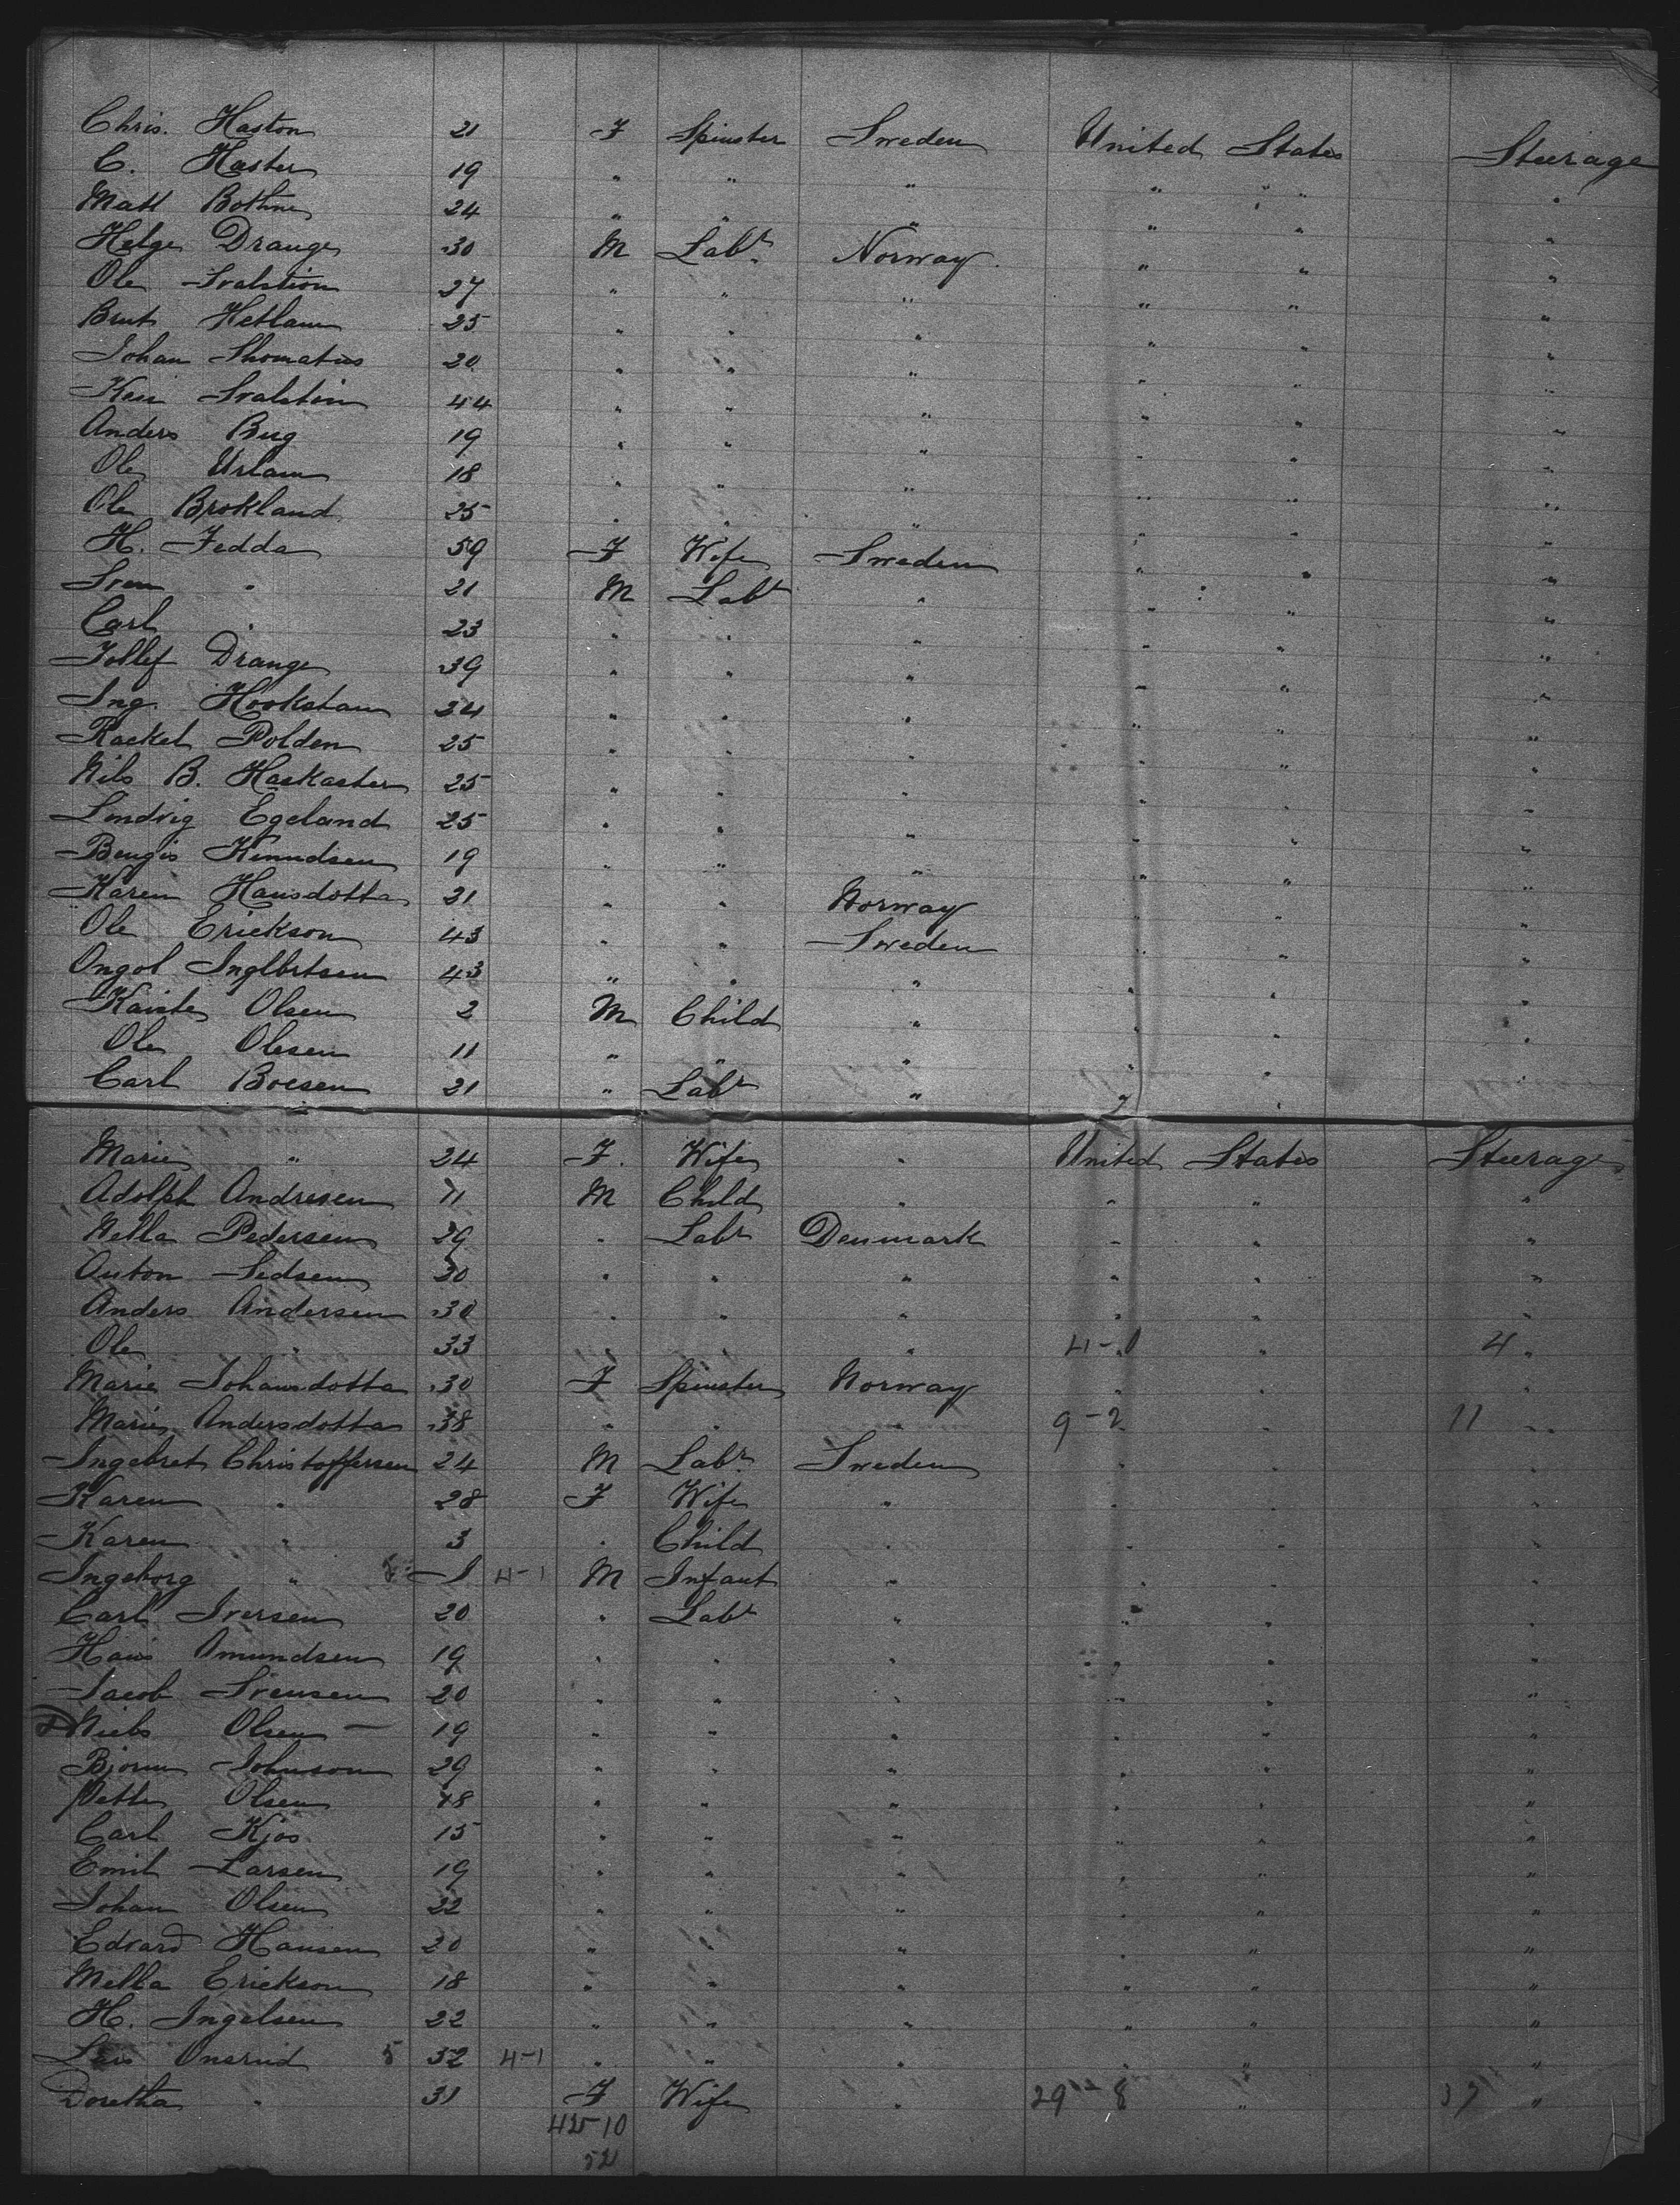 Chris. Haston 21 F Spinster Sweden United States Steerage
C. Haster 19 " " " " " "
Matt Bothne 24 " " " " " "
Helge Drange 30 M Labr Norway " " "
Ole Svalstion 27 " " " " " "
Brut Hetlam 25 " " " " " "
Johan Thomatus 20 " " " " " "
Svalstin 44 " " " " " "
Anders Bug 19 " " " " " "
Ole Urlam 18 " " " " " "
Ole Brokland 25 " " " " " "
H. Fedda 59 F Wife Sweden " " "
Sven " 21 M Labr " " " "
Carl " 23 " " " " " "
Tollef Drange 39 " " " " " "
Ing. Hookstam 34 " " " " " "
Rackel Polden 25 " " " " " "
Nils B. Haskaster 25 " " " " " "
Lindvig Egeland 25 " " " " " "
Bengis Knudsen 19 " " " " " "
Karen Hansdotta 21 " " Norway " " "
Ole Erickson 43 " " Sweden " " "
Ongol Inglbrtsen 43 " " " " " "
Kaiste Olsen 2 M Child " " " "
Ole Olesen 11 " " " " " "
Carl Boesen 21 " Labr " " " "
Marie " 24 F. Wife " United States Steerage
Adolph Andresen 11 M Child " " " "
Nella Pedersen 29 " Labr Denmark " " "
Anton Sedsen 30 " " " " " "
Anders Andersen 30 " " " " " "
Ole " 33 " " " 4-0 " 4 "
Marie Johansdotta 30 F Spinster Norway " " "
Marie Andersdotta 38 " " " 9-2 " 11 "
Ingebret Christoffersen 24 M Labr Sweden " " "
Karen " 28 F Wife " " " "
Karen " 3 " Child " " " "
Ingeborg " 1 4-1 M Infant " " " "
Carl Iversen 20 " Labr " " " "
Hans Amundsen 19 " " " " " "
Jacob Svensen 20 " " " " " "
Niels Olsen - 19 " " " " " "
Bjorn Johnson 29 " " " " " "
Pette Olsen 18 " " " " " "
Carl Kjos 15 " " " " " "
Emil Larsen 19 " " " " " "
Johan Olsen 22 " " " " " "
Edvard Hansen 20 " " " " " "
Mella Erickson 18 " " " " " "
H. Ingelsen 22 " " " " " "
Lars Onsrud 5 32 4-1 " " " " " "
Doretha " 31 F Wife " 29-8 " 37 "
42-10
52